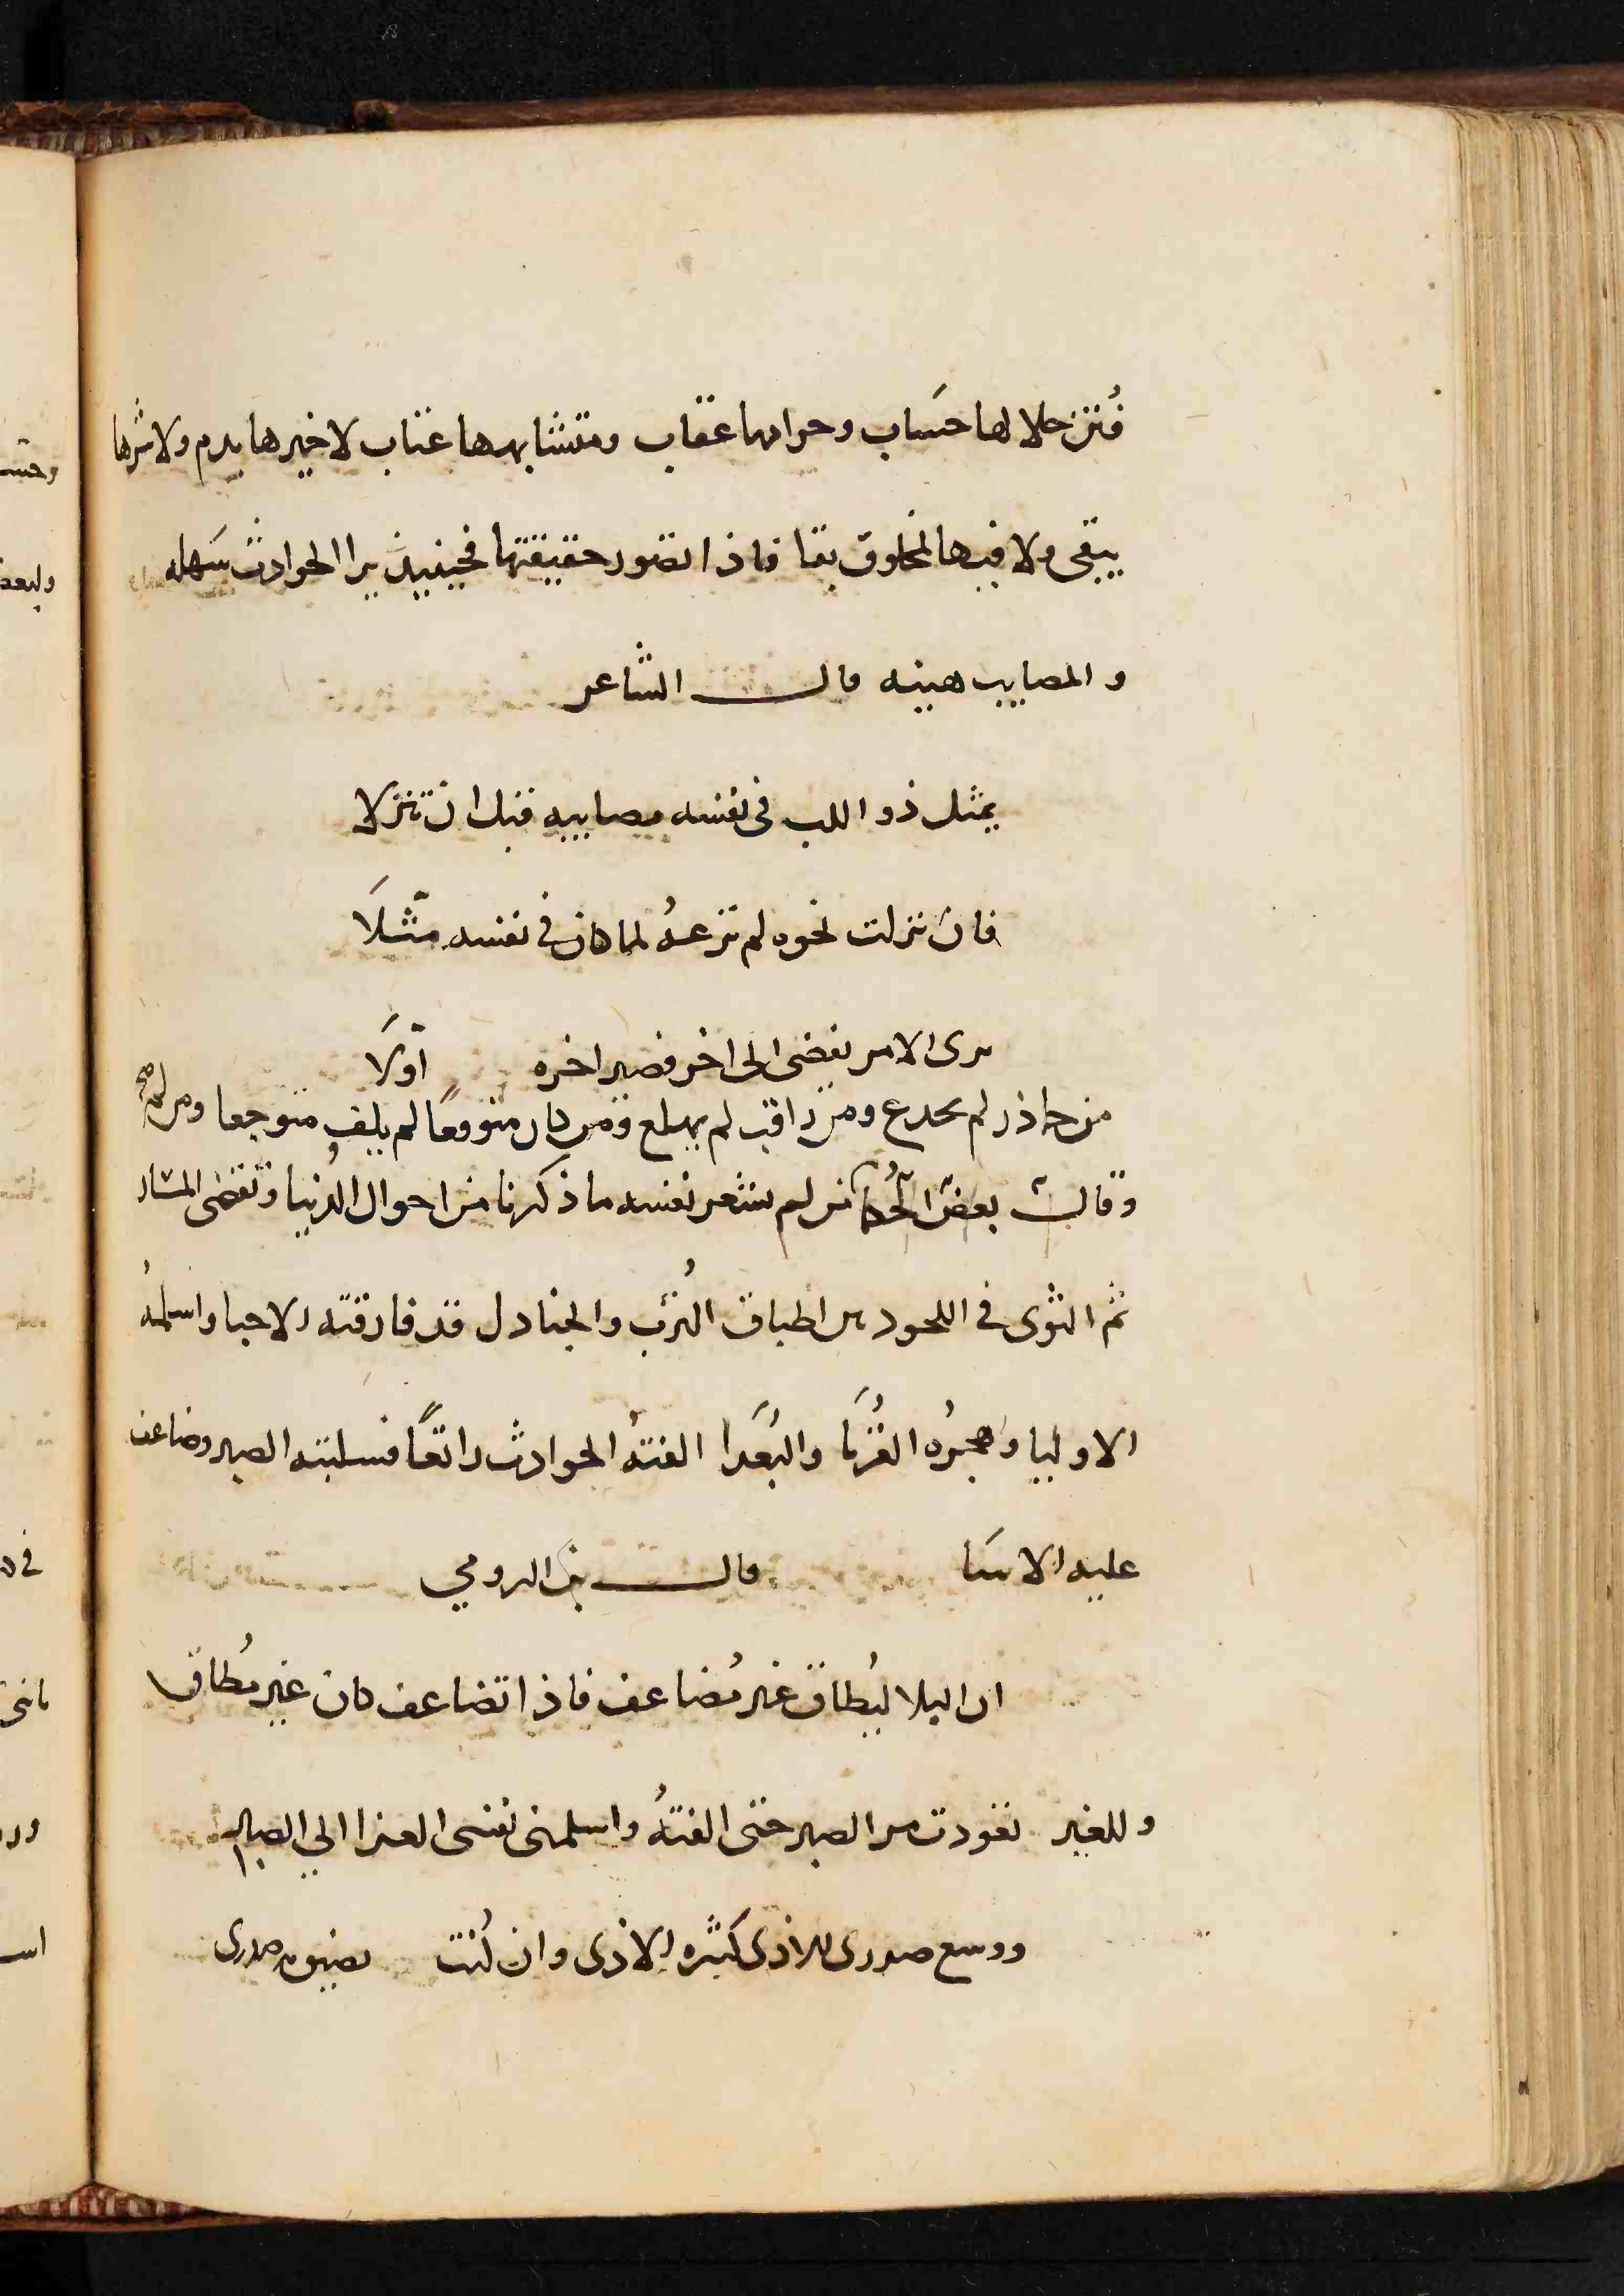 فُتن حلالها حسَاب وحرامها عقاب ومتشابهها عتاب لا خيرها يدم ولا شرها
يبقى ولا فيها لمخلوق بقا فاذا تصور حقيقتها فحينيذ يرا الحوادث سَهله
والمصايب هينه قال الشاعر
يمثل ذو اللب في نفسه مصايبه قبل ان تنزلا
فان نزلت نحوه لم ترعهُ لما كان في نفسه مثّلَا
يرى الامر يفضى الى اخر فصير اخره اوّلَا
من حاذر لم يخدع ومن راقب لم يهلع ومن كان متوقعًا لم يلف متوجعا ومن لم
وقالت بعض الحُكما من لم يشعر نفسه ما ذكرنا من احوال الدُنيا وتقضى المسار
ثم الثوى في اللحود بين اطباق التُرب والجنادل قد فارقته الاحبا واسلمهُ
الاوليا وهجرُه القُرَبا والبُعَدا الفتهُ الحوادث راتعًا فسلبته الصبر وضاعف
عليه الاسَا قال بن الرومي
ان البلا ليُطاق غير مُضاعف فاذا تضاعف كان غير مُطاق
وللغير تعودت مس الصبر حتى الفتهُ واسلمنى نفسى العزا الي الصبر
ووسع صدرى للاذى كثره الاذى وان كُنت يضيق صدرى